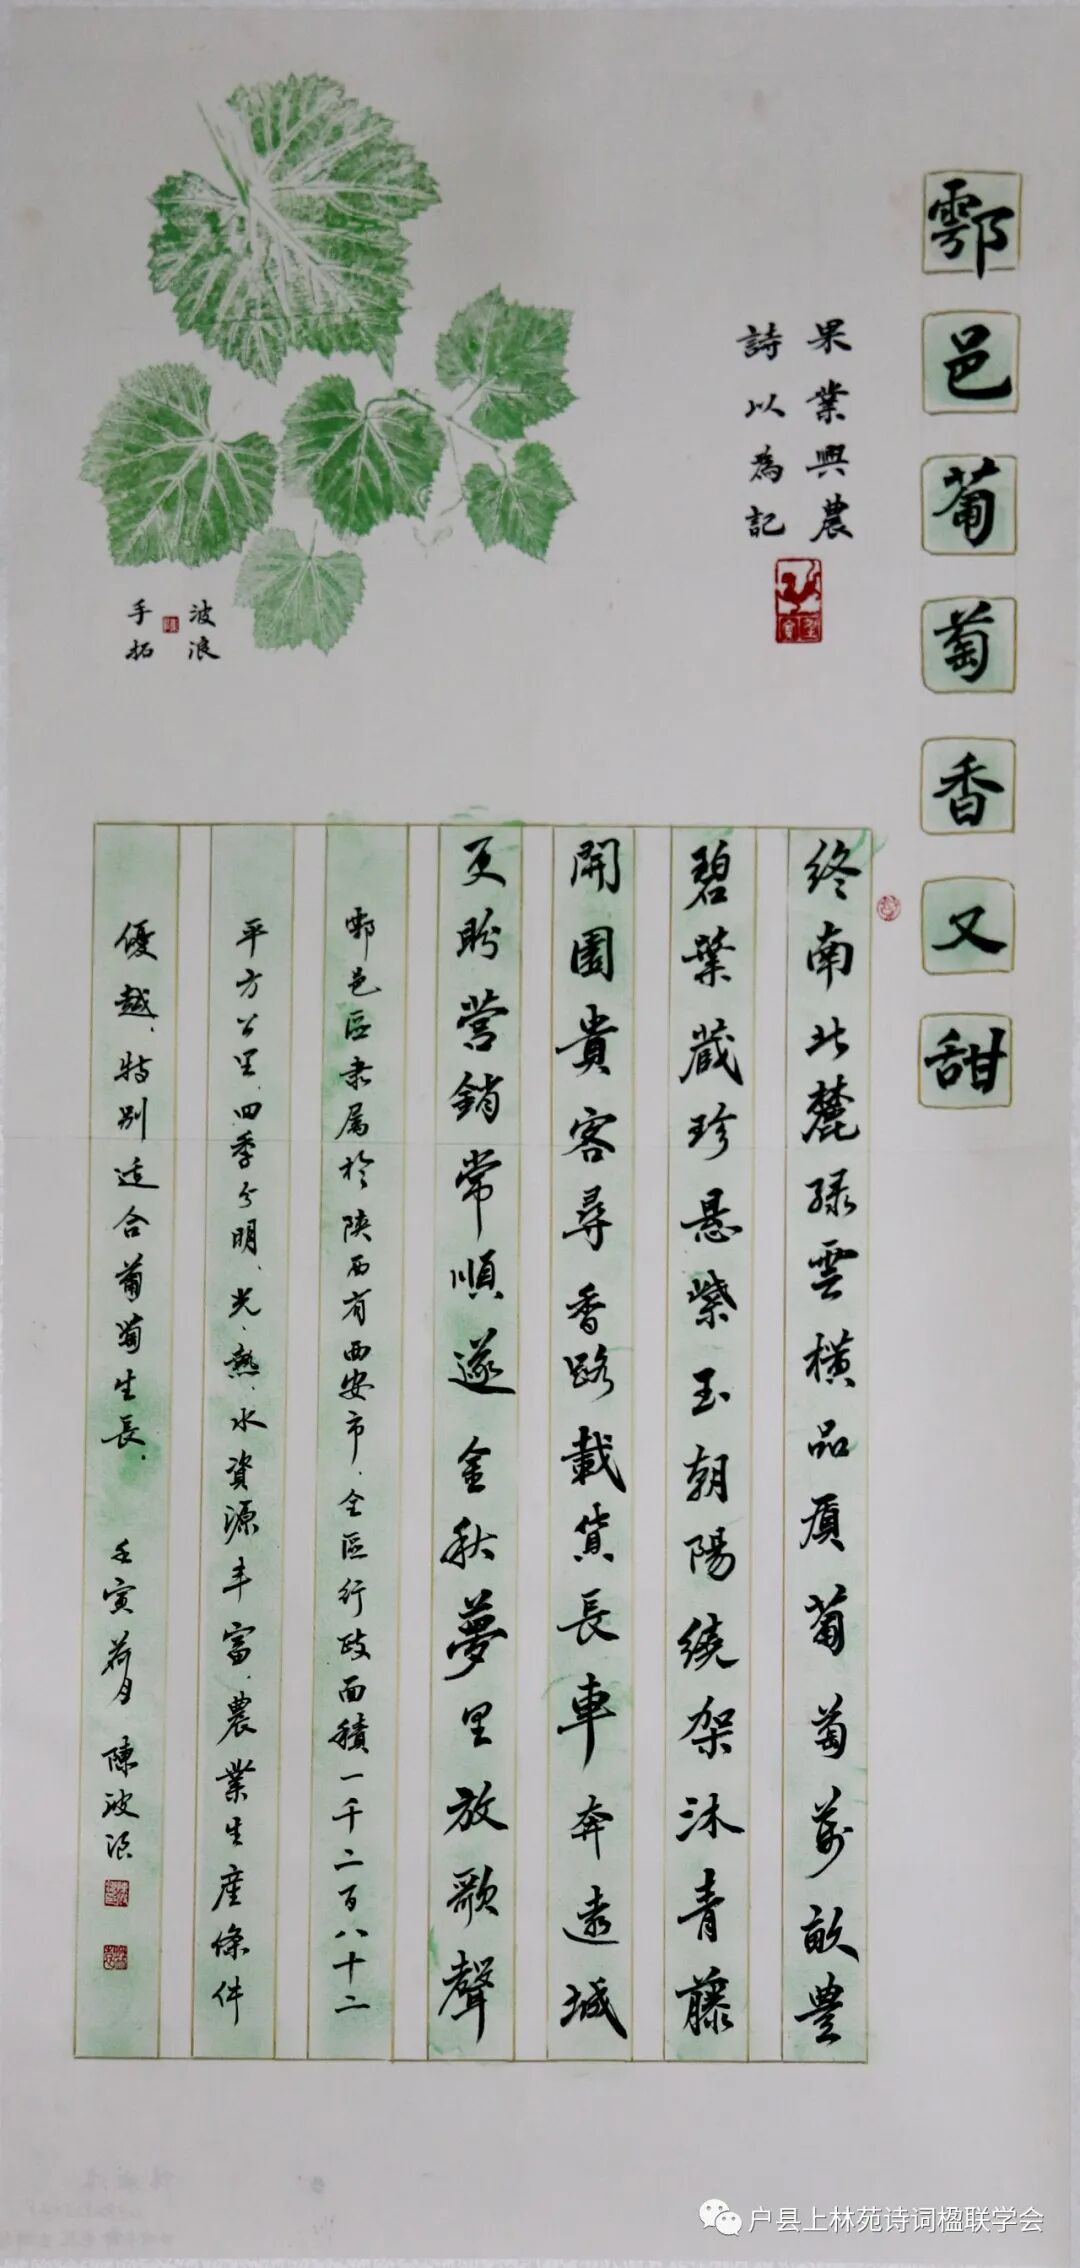 鄠邑葡萄香又甜
果業興農
詩以為記
波浪
手拓
終南北麓綠雲橫品質葡萄萬畝豊
碧葉蔵珍悬紫玉朝陽繞架沐青藤
開園貴客尋香路載貨長車奔遠城
更盼營銷常順遂金秋夢里放歌聲
鄠邑區隶属於陕西省西安市、全區行政面積一千二百八十二
平方公里、四季分明、光、熱、水資源丰富、農業生產條件
優越、特别适合葡萄生長、壬寅荷月陳波浪
户县上林苑诗词楹联学会